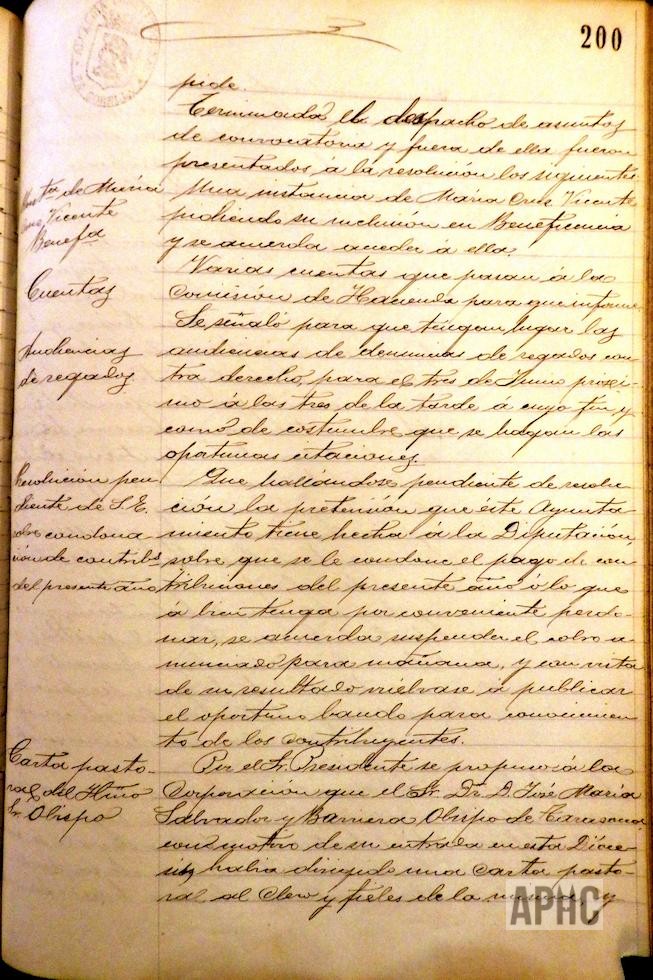 200
pide.
Terminada el despacho de asuntos
de convocatoria y fuera de ella fueron
presentados á la resolución los siguientes
Inst.ª de Maria
Cruz Vicente
Benef.ª
Una instancia de Maria Cruz Vicente
pidiendo su inclusión en Beneficencia
y se acuerda acceder á ella.
Cuentas
Varias cuentas que pasan á la
Comisión de Hacienda para que informe.
Audiencias
de regados
Se señaló para que tengan lugar las
audiencias de denuncias de regados con-
tra derecho, para el tres de Junio proxi-
mo á las tres de la tarde á cuyo fin y
como de costumbre que se hagan las
oportunas citaciones.
Resolución pen
diente de S.E.
sobre condona
ción de contrib.s
del presente año
Que hallándose pendiente de resolu-
ción la pretensión que éste Ayunta-
miento tiene hecha á la Diputación
sobre que se le condone el pago de con
tribuciones del presente año ó lo que
á bien tenga por conveniente perdo-
nar, se acuerda suspender el cobro a-
nunciado para mañana, y con vista
de su resultado vuélvase á publicar
el oportuno bando para conocimien
to de los contribuyentes.
Carta pasto-
ral del Iltmo
Sr. Obispo
Por el Sr. Presidente se propuso á la
Corporación que el Sr. Dr. D. José Maria
Salvador y Barrera Obispo de Tarazona
con motivo de su entrada en esta Dióce-
sis, habia dirigido una carta pasto-
ral al Clero y fieles de la misma, y
APHC